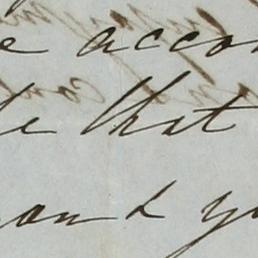 e acco
e that
and yo